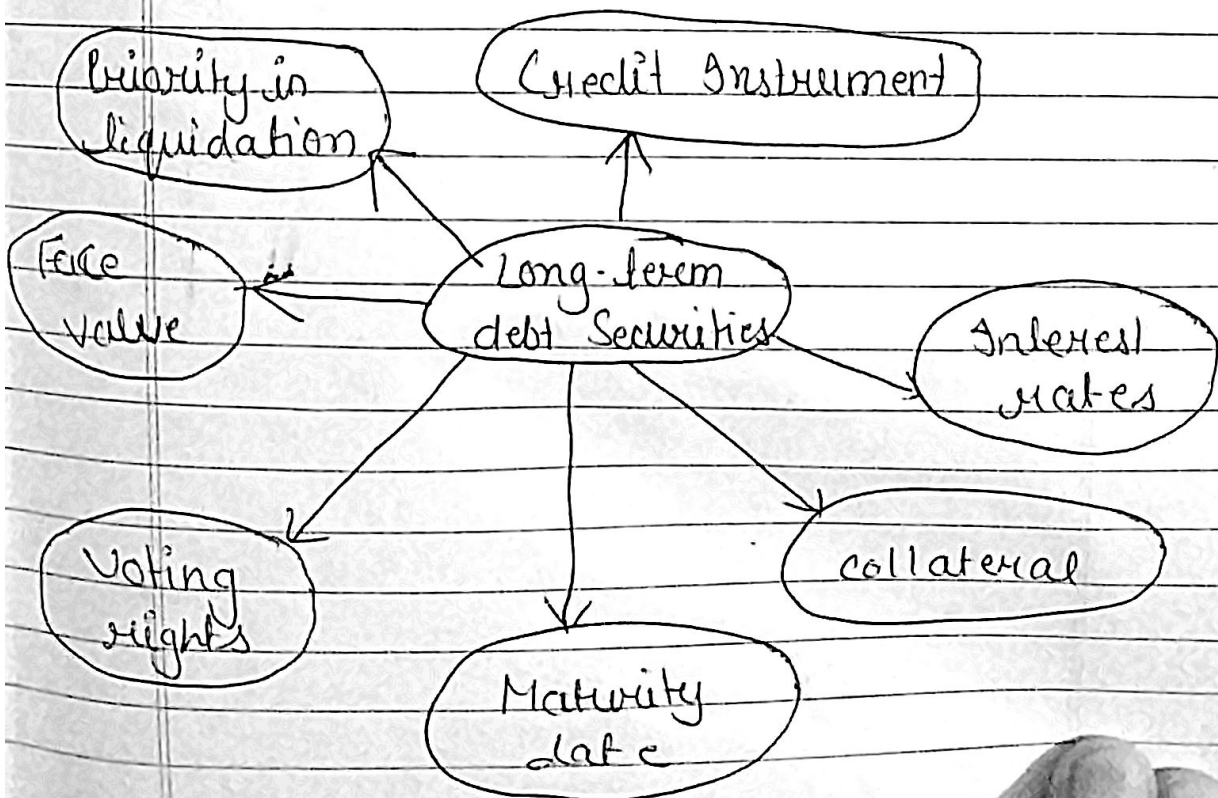 Priority in
liquidation
Credit Instrument
Face
value
Long-term
debt Securities
Interest
rates
Voting
rights
collateral
Maturity
date